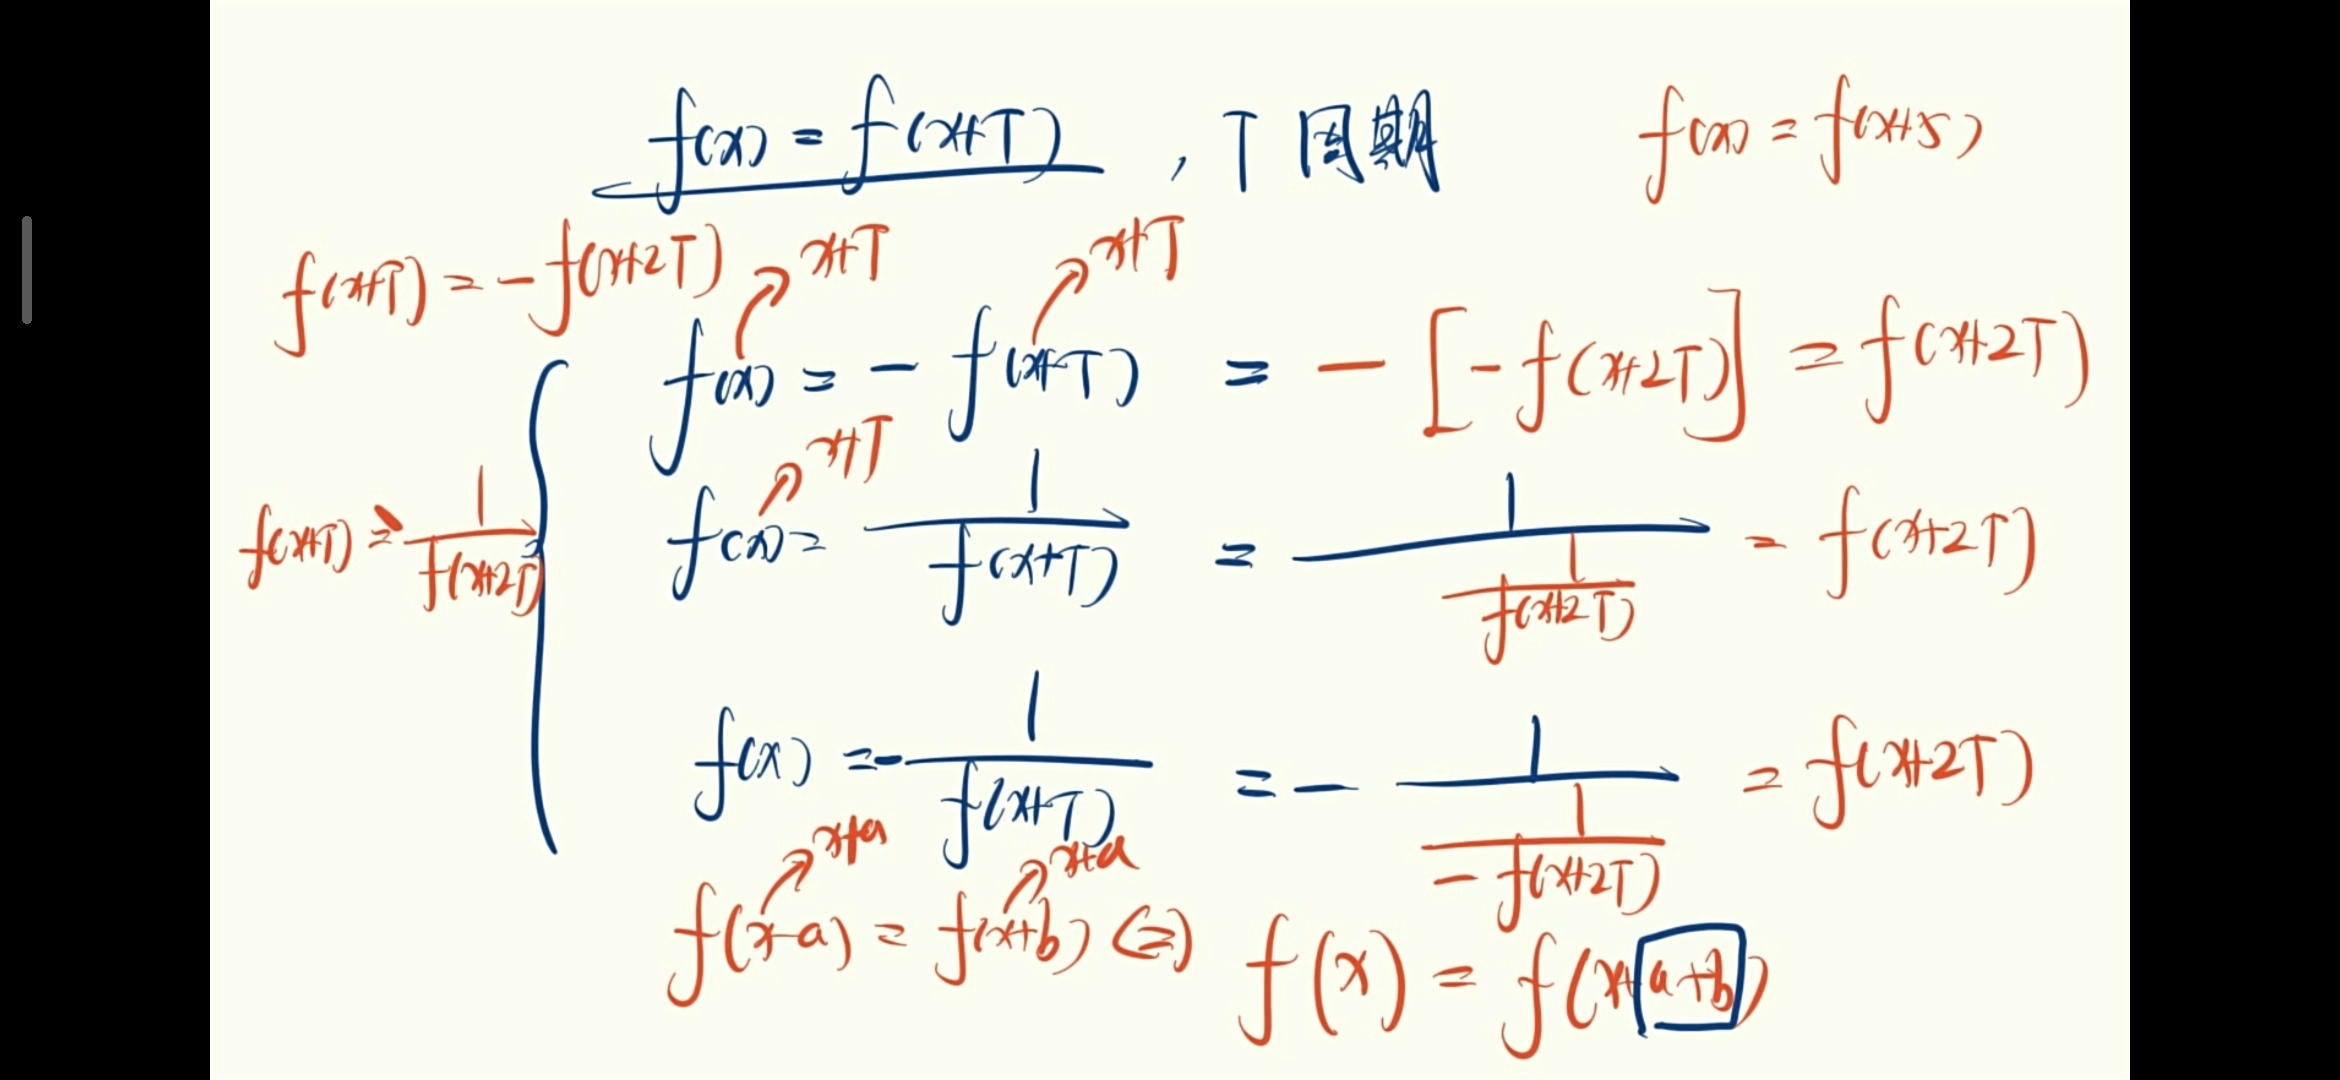 f(x) = f(x+T) , T 周期 f(x) = f(x+5)
f(x+T) = -f(x+2T) x+T x+T
f(x) = - f(x+T) = - [-f(x+2T)] = f(x+2T)
x+T
f(x+T) = 1/f(x+2T) f(x) = 1/f(x+T) = 1/(1/f(x+2T)) = f(x+2T)
f(x) = - 1/f(x+T) = - 1/(1/-f(x+2T)) = f(x+2T)
x+a x+a
f(x-a) = f(x+b) <=> f(x) = f(x+a+b)